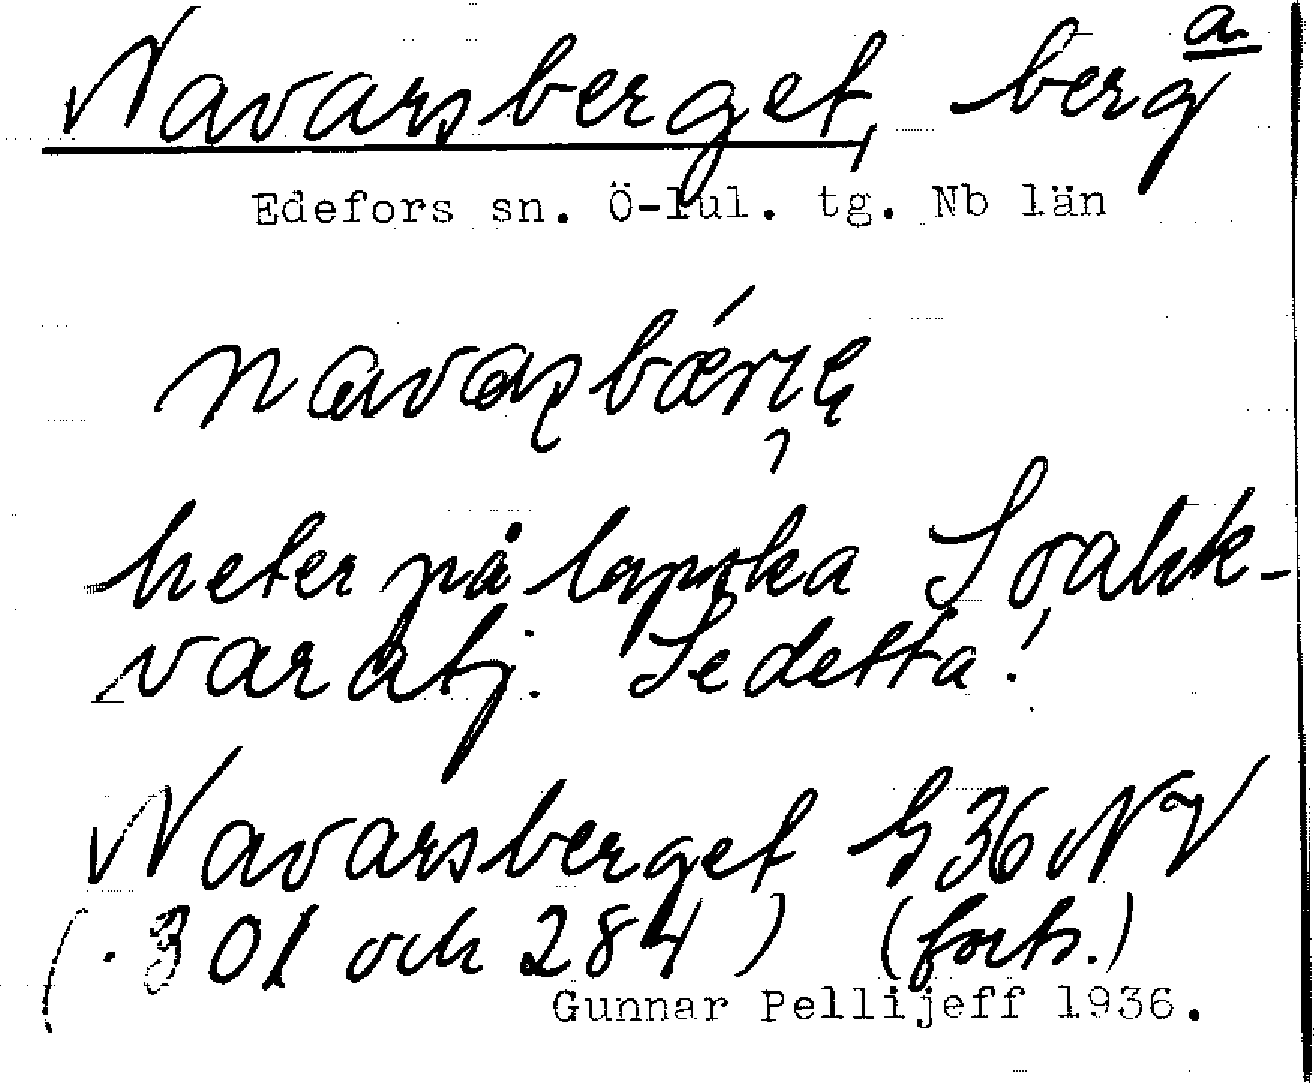 a.
Navarsberget, berg
Edefors sn. Ö-lul. tg. Nb län
heter på lapska Svahk-
varatj. Se detta!
Navarsberget G36NV
(·301 och 284) (forts.)
Gunnar Pellijeff 1936.